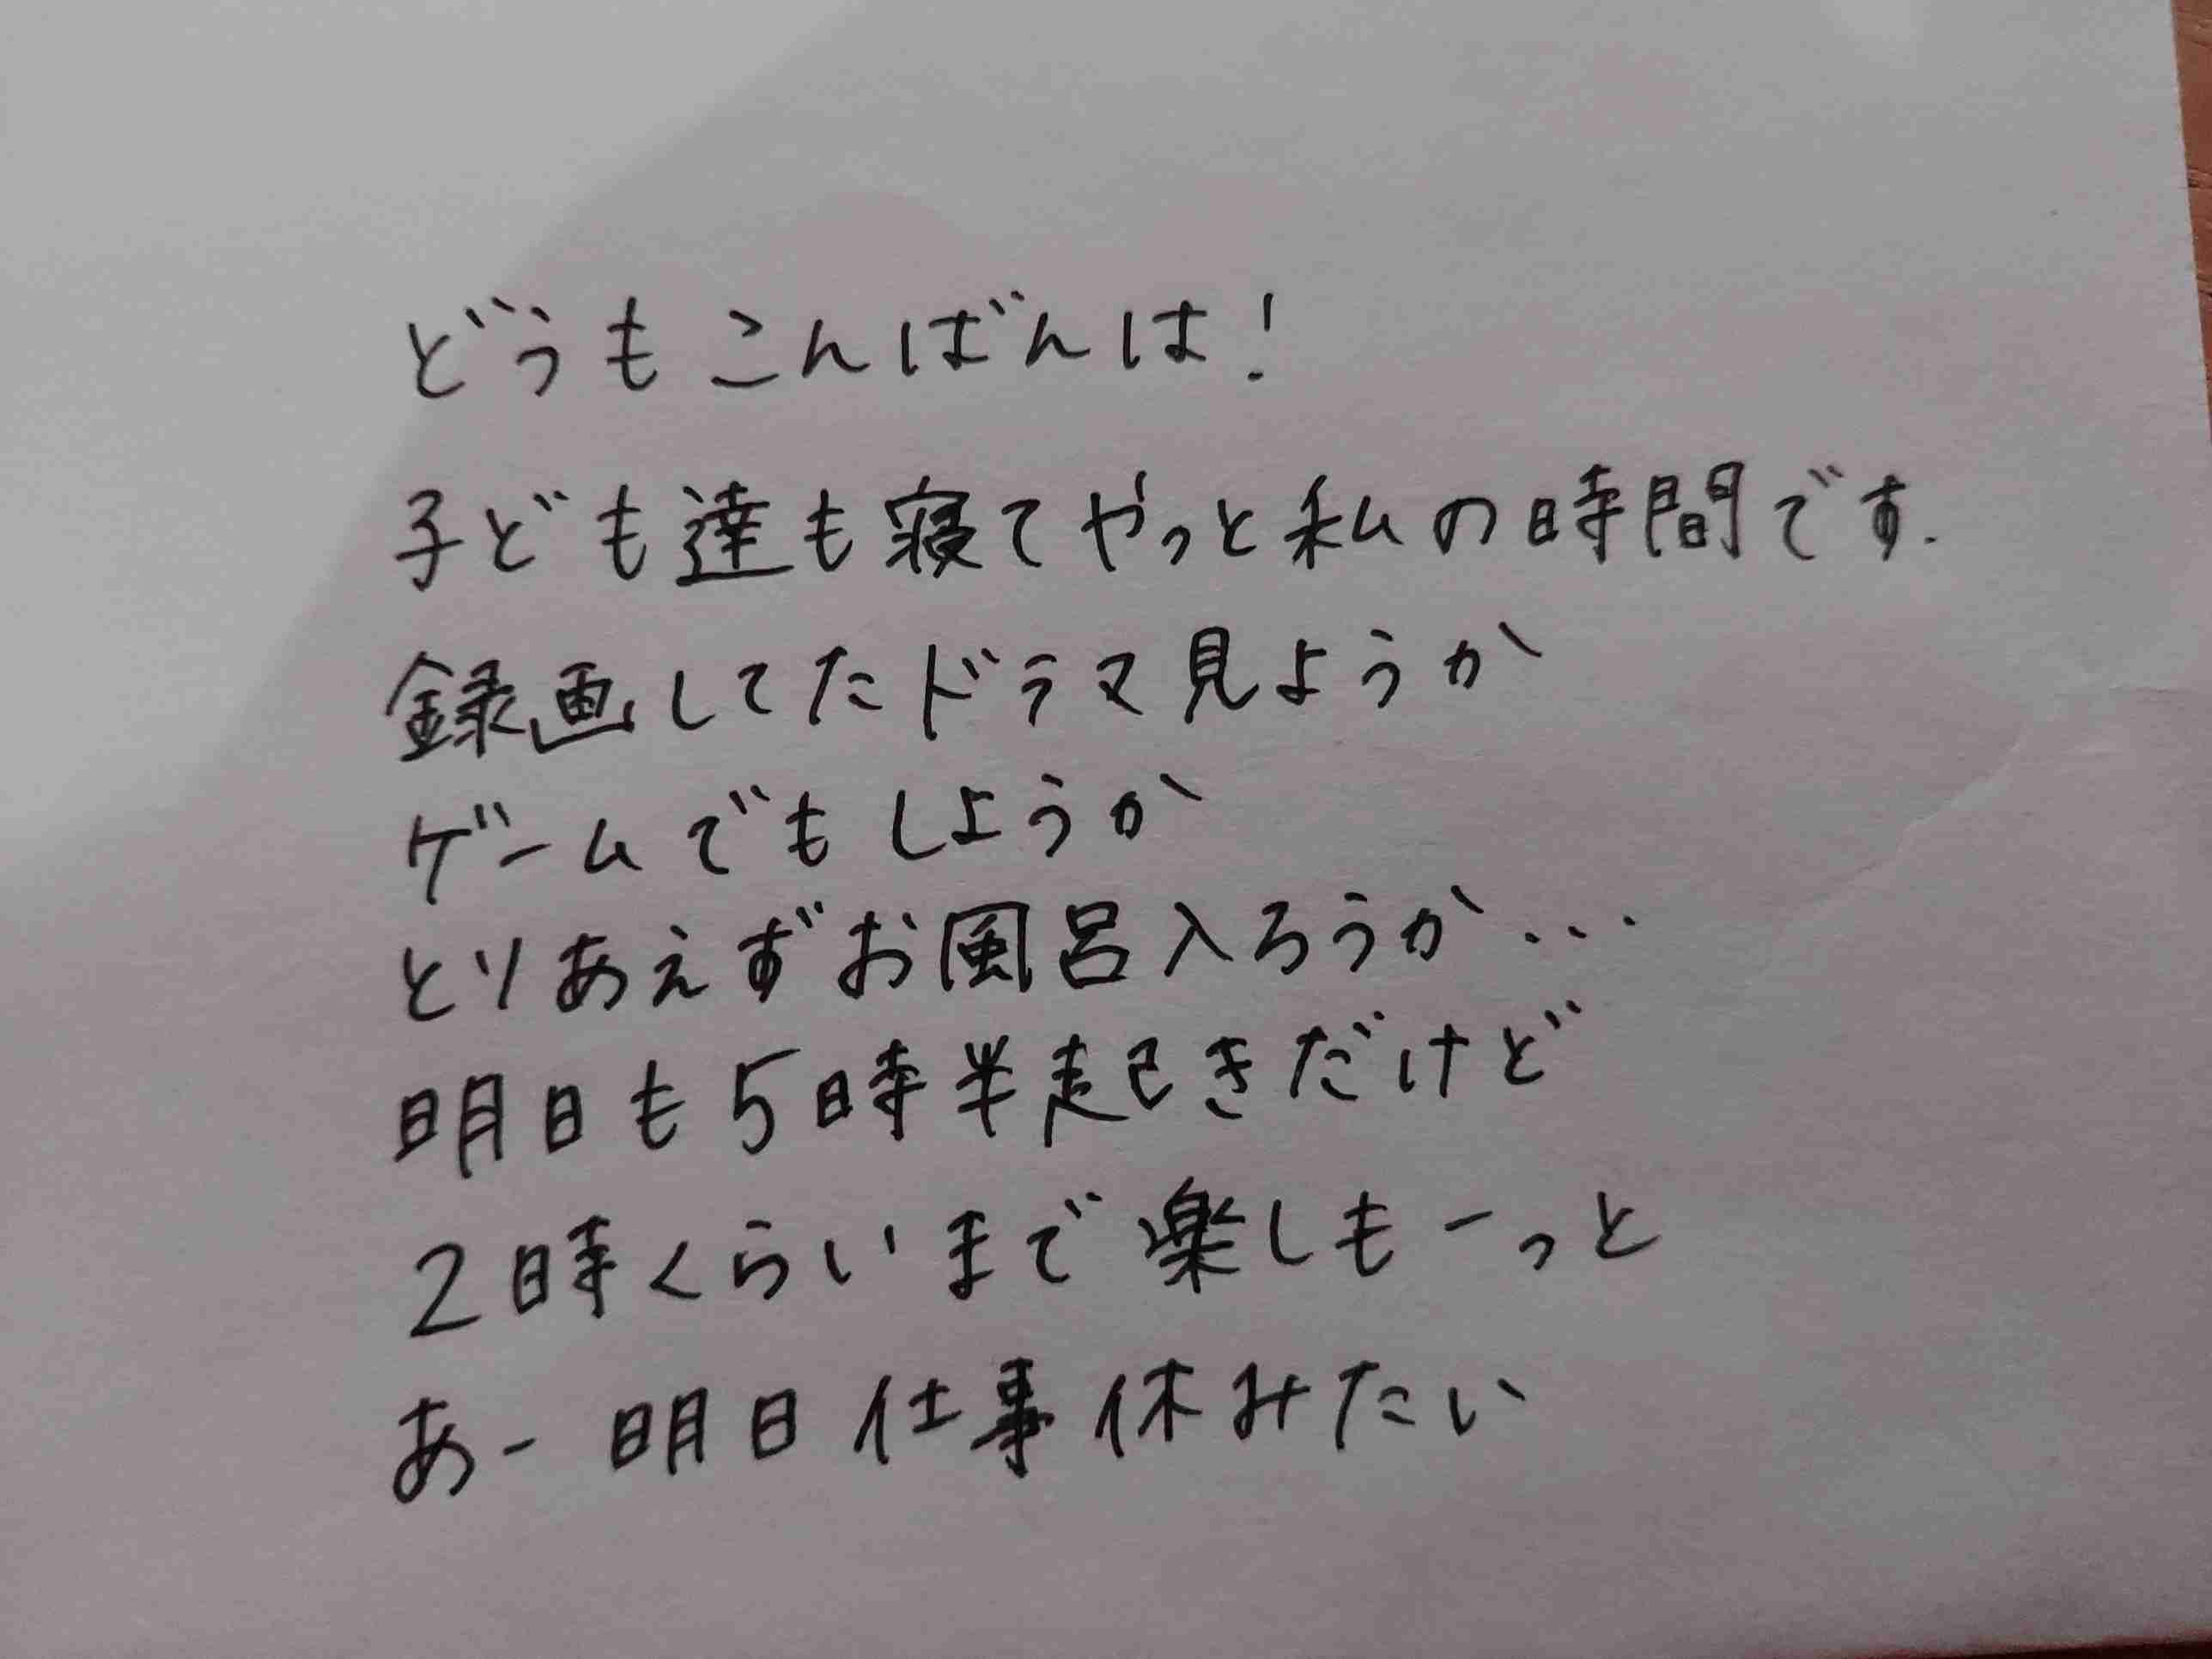 どうもこんばんは!
子ども達も寝てやっと私の時間です.
録画してたドラマ見ようか
ゲームでもしようか
とりあえずお風呂入ろうか...
明日も5時半起きだけど
2時くらいまで楽しもーっと
あー明日仕事休みたい